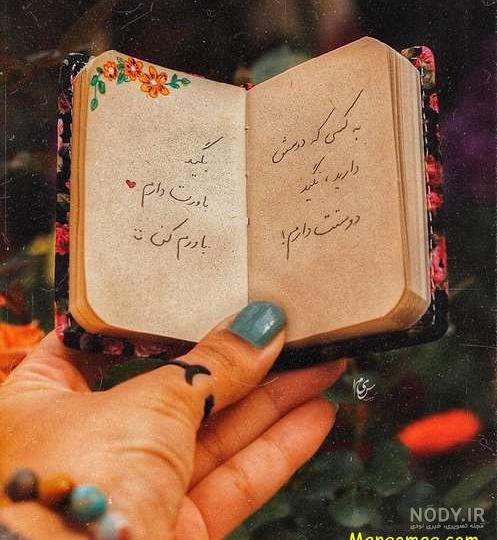 به کسی که دوستش
دارید، نگید
دوستت دارم!
بگید
باورت دارم
باورم کن تا
NODY.IR
مجله تصویری، خبری نودی
Mangomag.com